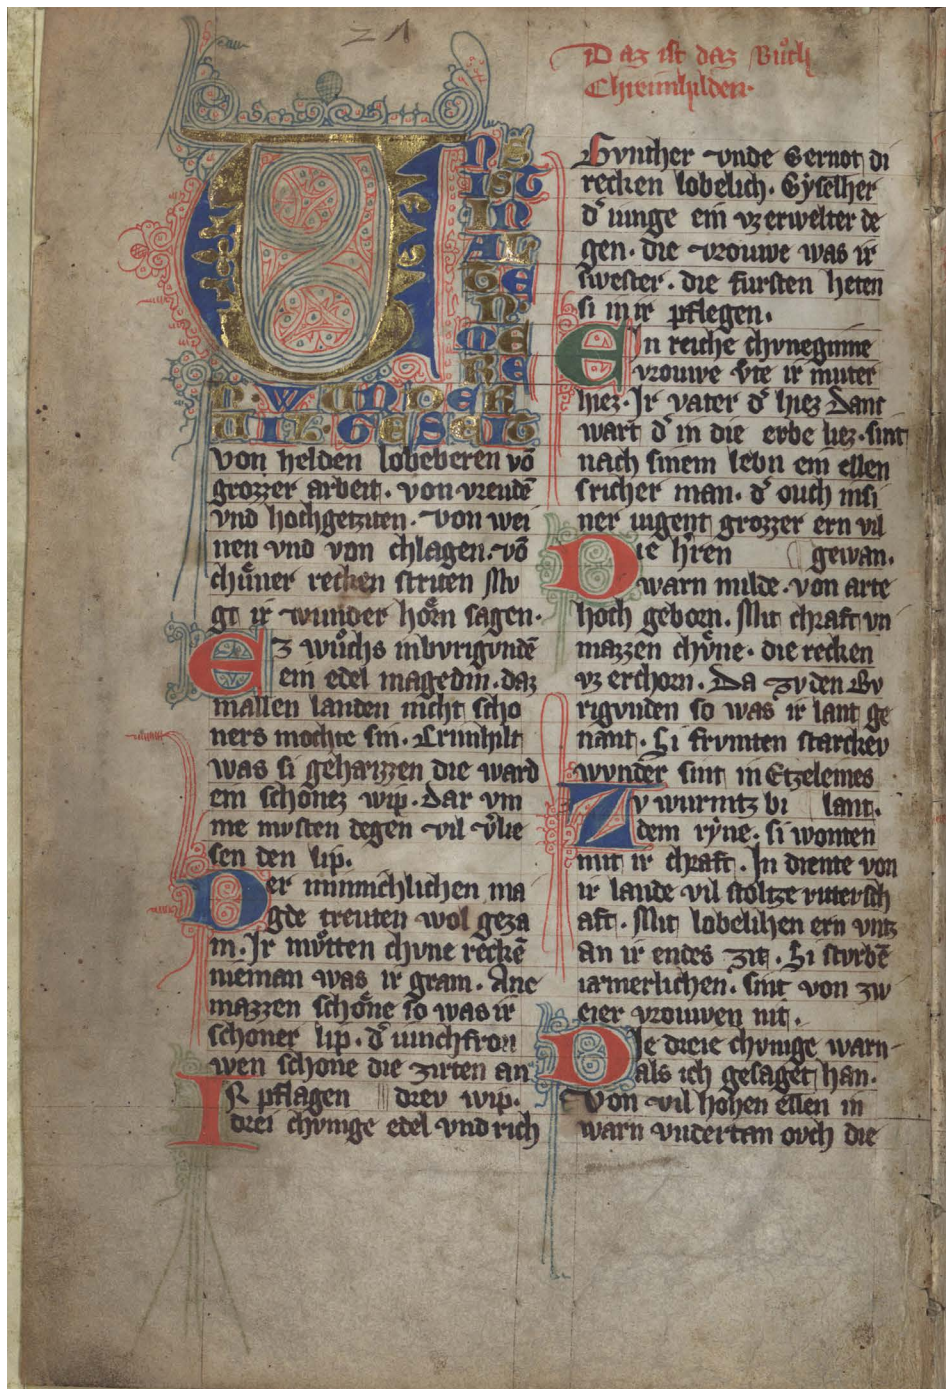 21
Daz ist daz Bůch
Chreimhilden.
UNS
IST
IN
AL
TEN
ME
RE
N. WUNDER
VIL. GESEIT
von helden lobeberen võ
grozzer arbeit. von vreudẽ
vnd hochgetziten. von wei
nen vnd von chlagen. võ
chůner recken striten Mv
gt ir wunder hörn sagen.
Ez wůchs inbvrigvndẽ
ein edel magedin. daz
mallen landen nicht scho
ners mochte sin. Crimhilt
was si geheizzen die ward
ein schonez wip. dar vm
me mvsten degen vil v̾lie
sen den lip.
Der minnichlichen ma
gde treuten wol geza
m. Ir mv̊tten chvne reckẽ
nieman was ir gram. Ane
mazzen schône so was ir
schoner lip. d̾ iunchfrou
wen schone die zirten an
Ir pflagen drev wip.
drei chvnige edel vnd rich
Gvnther vnde Gernot di
recken lobelich. Gyselher
d̾ iunge ein vz erwelter de
gen. die vrouwe was ir
swester. die fursten heten
si in ir pflegen.
Ein reiche chvneginne
vrouwe v̊te ir muter
hiez. Ir vater d̾ hiez Danc
wart d̾ in die erbe liez. sint
nach sinem lebn ein ellen
sricher man. d̾ ouch insi
ner iugent grozzer ern vil
Die h̾ren gewan.
warn milde. von arte
hoch geborn. Mit chraft vn
mazzen chv̊ne. die recken
vz erchorn. Da zv den Bv
rigvnden so was ir lant ge
nant. Si frvmten starckev
wvnder sint in Etzelemes
Zv wurmtz bi lant.
dem ryne. si wonten
mit ir chraft. In diente von
ir lande vil stoltze rittersch
aft. Mit lobelihen ern vntz
an ir endes zit. Si stvrbẽ
iarmerlichen. sint von zw
eier vrouwen nit.
Die dreie chvnige warn
als ich gesaget han.
Von vil hohen ellen in
warn vndertan ovch die